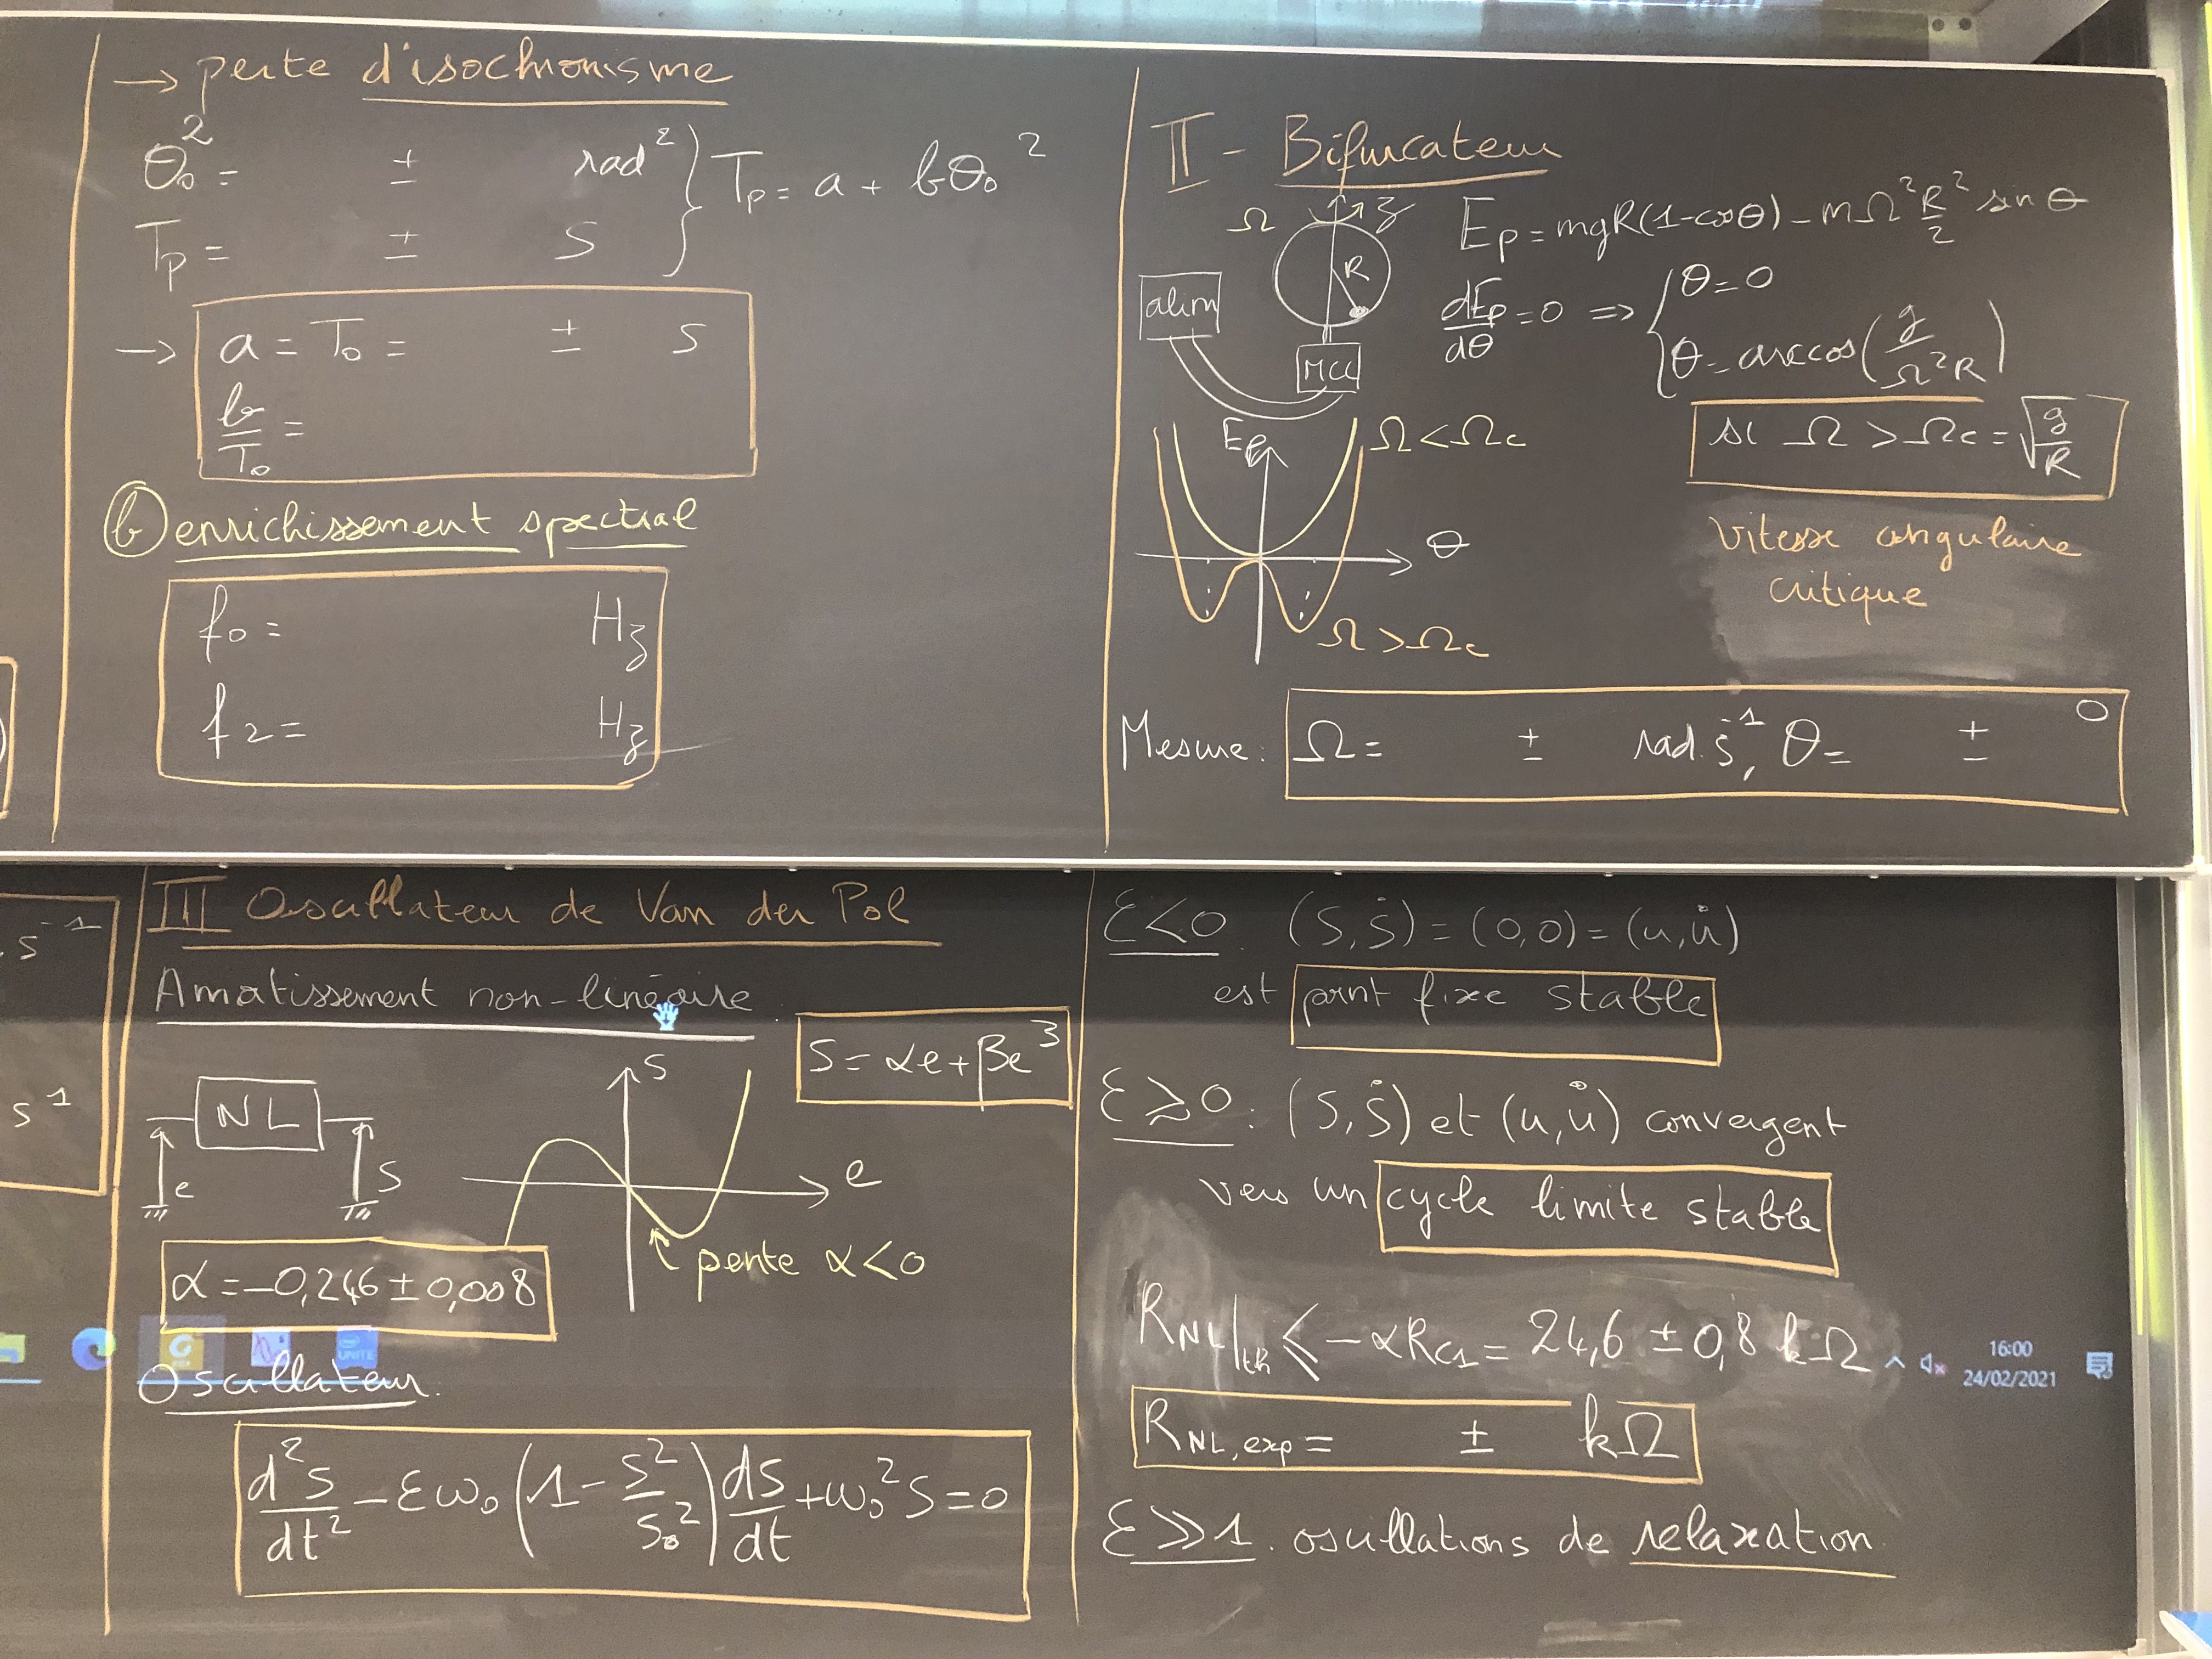 → perte d'isochronisme
θ₀² = ± rad²
Tp = ± s
} Tp = a + bθ₀²
→ a = T₀ = ± s
b/T₀ =
ⓑ enrichissement spectral
f₀ = Hz
f₂ = Hz
II - Bifurcateur
Ω z
R
alim
MCC
Ep = mgR(1-cosθ) - mΩ² R²/2 sin θ
dEp/dθ = 0 => { θ = 0
θ = arccos(g/Ω²R)
si Ω > Ωc = √(g/R)
vitesse angulaire
critique
Ep
Ω < Ωc
θ
Ω > Ωc
Mesure : Ω = ± rad.s⁻¹, θ = ± °
.s⁻¹
s¹
III Oscillateur de Van der Pol
Amortissement non-linéaire
S = αe + βe³
NL
e
S
S
e
pente α < 0
α = -0,246 ± 0,008
UNITE
Oscillateur
d²S/dt² - εω₀ (1 - S²/S₀²) dS/dt + ω₀² S = 0
ε<0 : (S, Ṡ) = (0,0) = (u, u̇)
est point fixe stable
ε ≳ 0 : (S, Ṡ) et (u, u̇) convergent
vers un cycle limite stable
R_NL|th ⩽ -αR_C1 = 24,6 ± 0,8 kΩ
16:00
24/02/2021
R_NL,exp = ± kΩ
ε ≫ 1 : oscillations de relaxation